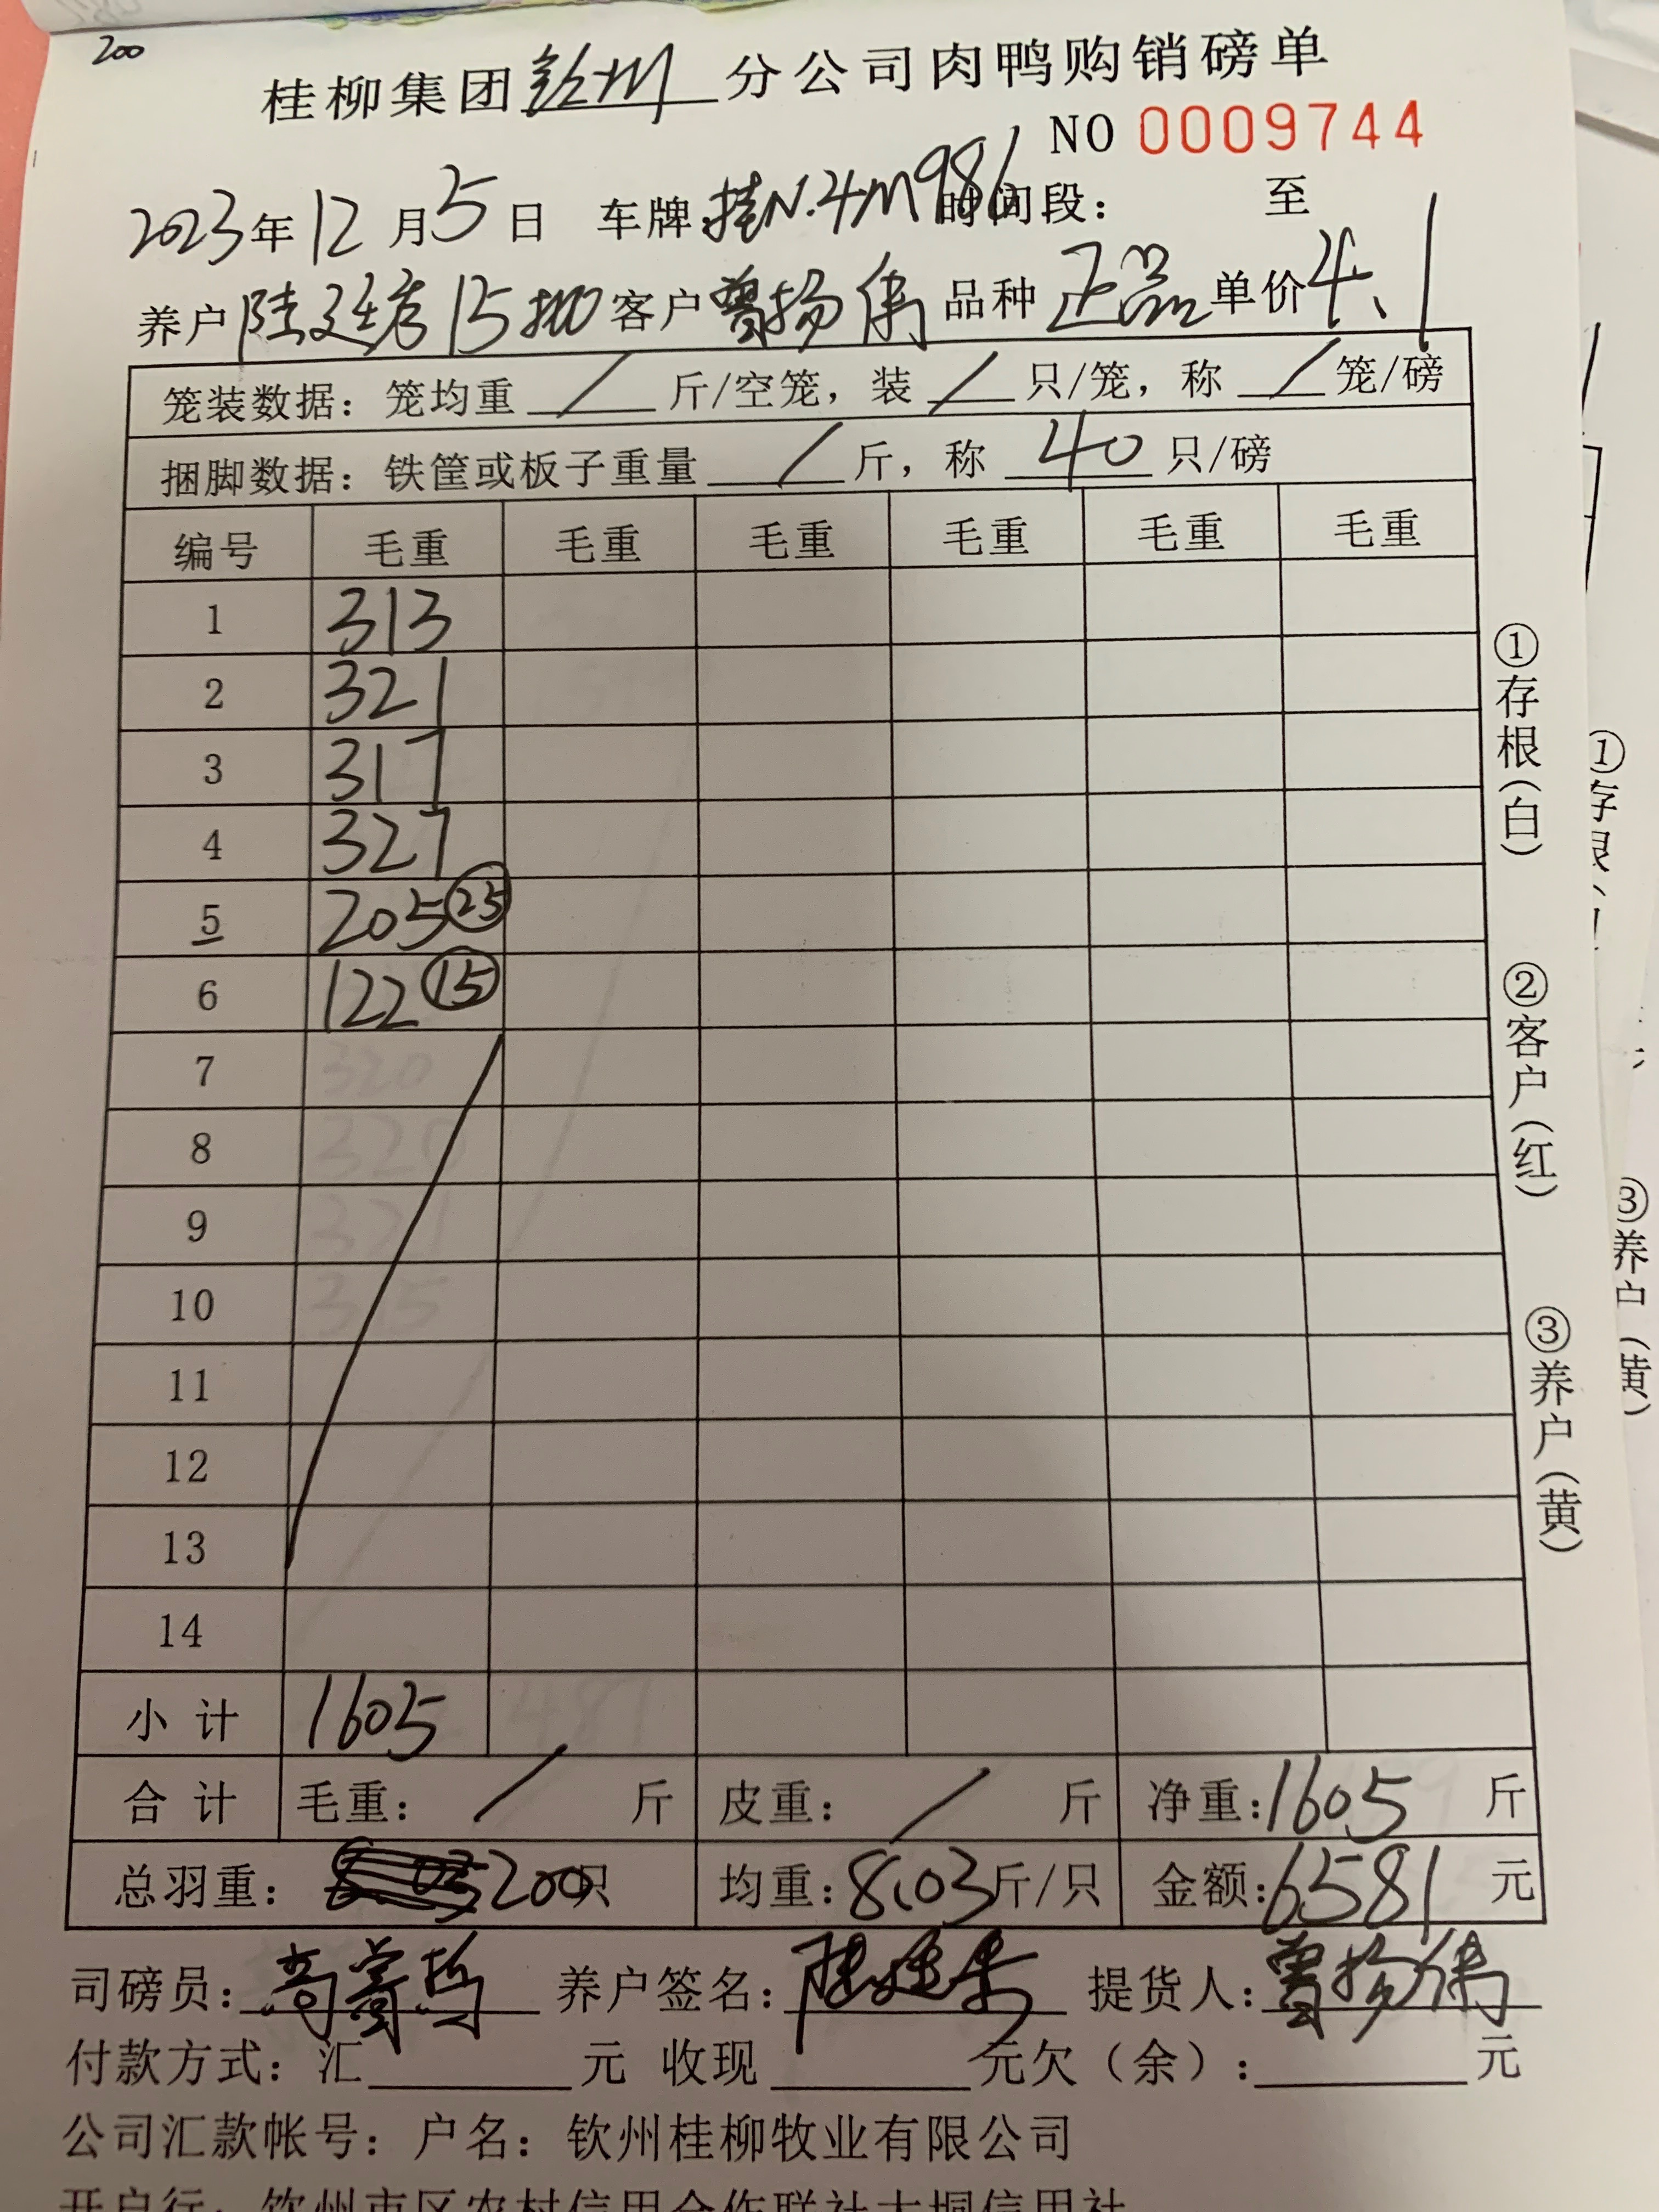 200
桂柳集团钦州分公司肉鸭购销磅单
NO 0009744
2023年12月5日 车牌:桂N.4M986 时间段: 至
养户 陆廷 15批 客户曾扬伟 品种 正品 单价4.1
笼装数据: 笼均重 / 斤/空笼, 装 / 只/笼, 称 / 笼/磅
捆脚数据: 铁筐或板子重量 / 斤, 称 40 只/磅
编号 毛重 毛重 毛重 毛重 毛重 毛重
1 313
2 321
3 317
4 327
5 205 ㉕
6 122 ⑮
7
8
9
10
11
12
13
14
小 计 1605
合 计 毛重: / 斤 皮重: / 斤 净重:1605 斤
总羽重: 200只 均重:8.03斤/只 金额:6581 元
司磅员: 养户签名: 提货人:曾扬伟
付款方式: 汇 元 收现 元欠(余): 元
公司汇款帐号: 户名: 钦州桂柳牧业有限公司
开户行: 钦州市区农村信用合作联社大垌信用社
①存根(白)
②客户(红)
③养户(黄)
①存根
③养户(黄)